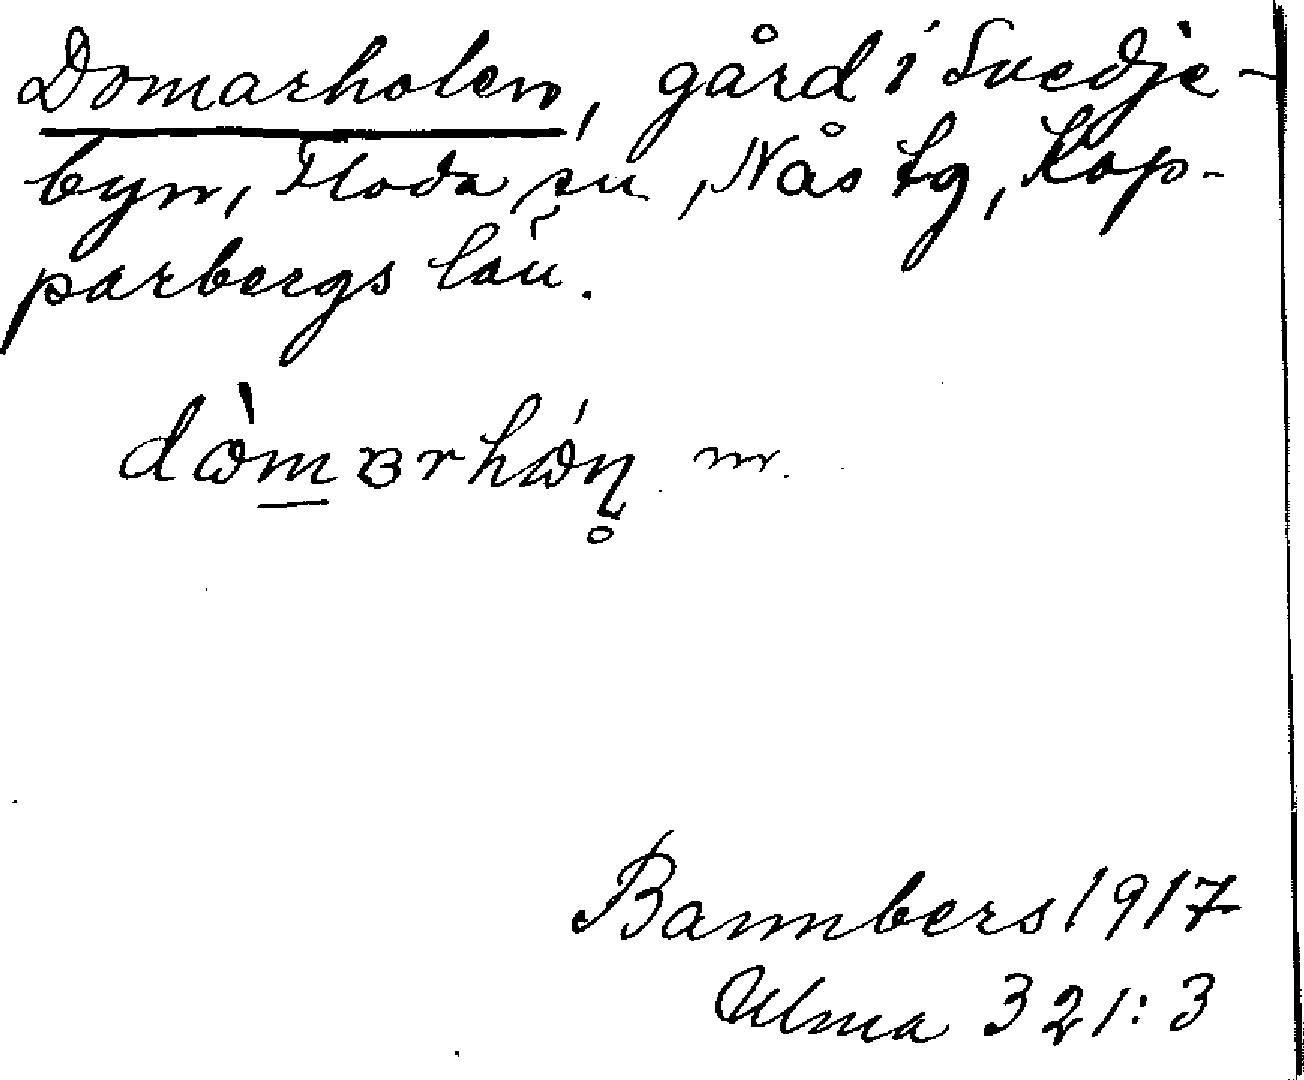 Domarholen, gård i Svedje-
byn, Floda sn, Nås tg, Kop-
parbergs län.
dὼmɐrhώn̥ m.
Bannbers 1917
Ulma 321:3